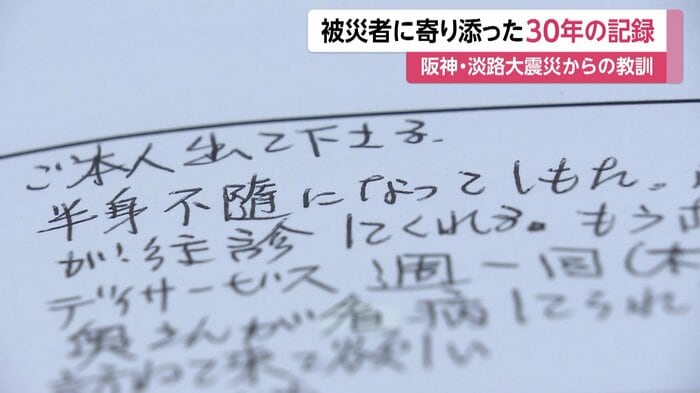 被災者に寄り添った30年の記録
阪神・淡路大震災からの教訓
ご本人出て下さる。
半身不随になってしもた。
が往診してくれる。もう
デイサービス週一回(木
奥さんが看病してられ
訪ねて来て欲しい